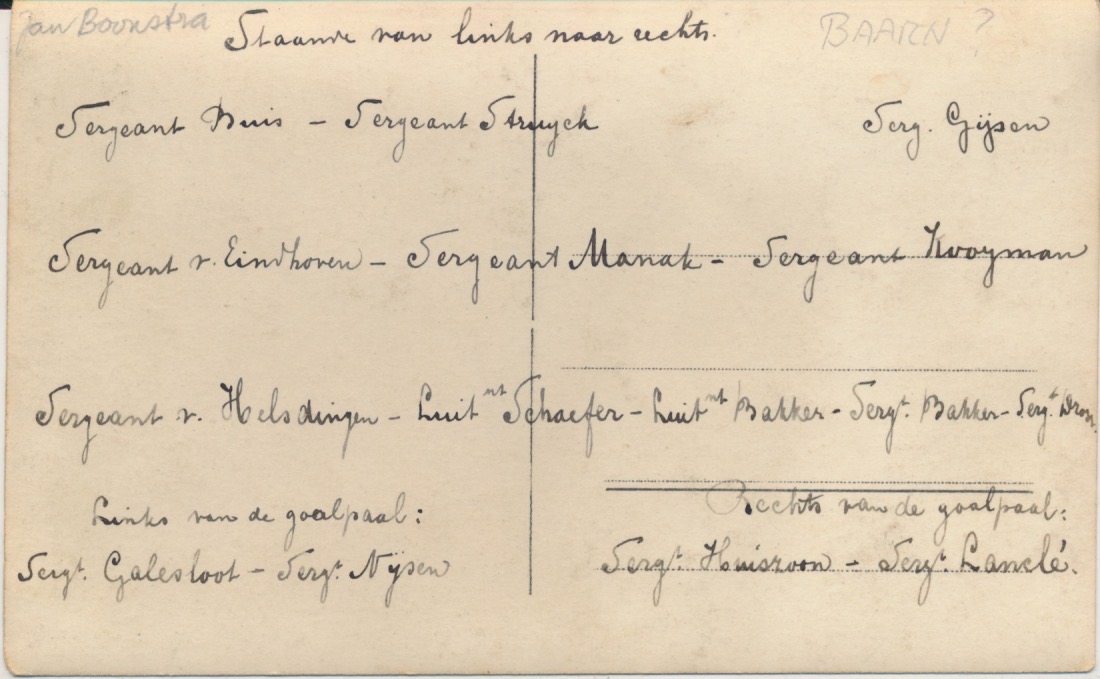 Jan Boonstra BAARN ?
Staande van links naar rechts.
Sergeant Buis – Sergeant Struyck Serg. Gijsen
Sergeant v. Eindhoven – Sergeant Manak – Sergeant Kooyman
Sergeant v. Helsdingen – Luitnt Schaefer – Luitnt Bakker – Sergt. Bakker – Sergt
Links van de goalpaal: Rechts van de goalpaal:
Sergt. Galesloot – Sergt. Nijsen Sergt. Huiszoon – Sergt. Lanclé.